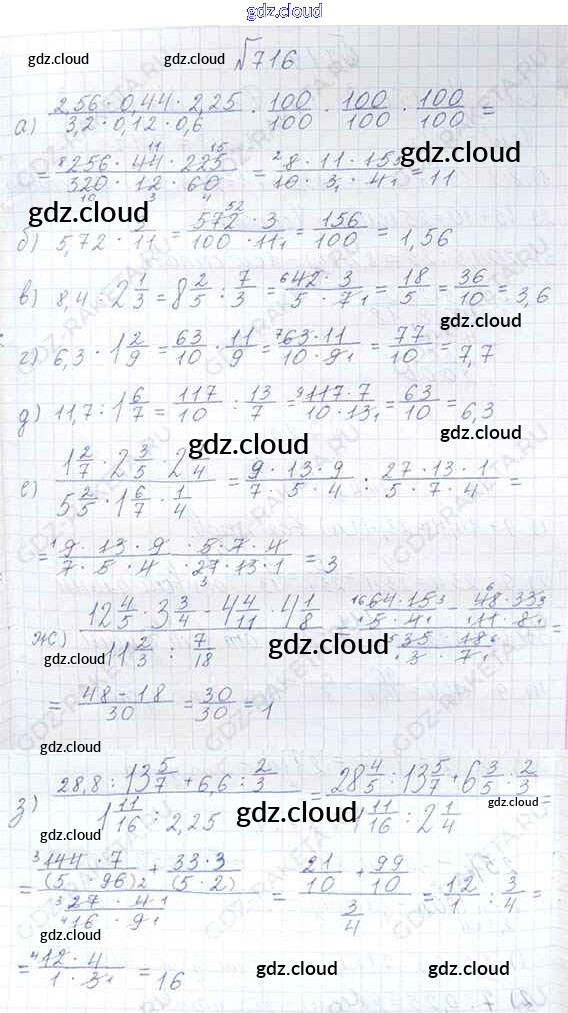 gdz.cloud
gdz.cloud gdz.cloud √716 gdz.cloud
а) (2,56 · 0,44 · 2,25)/(3,2 · 0,12 · 0,6) · 100/100 · 100/100 · 100/100 =
= (256 · 44 · 225)/(320 · 12 · 60) = (8 · 11 · 15)/(10 · 3 · 4) = 11
gdz.cloud gdz.cloud
б) 5,72 · 3/11 = (572 · 3)/(100 · 11) = 156/100 = 1,56
в) 8,4 : 2 1/3 = 8 2/5 : 7/3 = (42 · 3)/(5 · 7) = 18/5 = 36/10 = 3,6
gdz.cloud
г) 6,3 · 1 2/9 = 63/10 · 11/9 = (63 · 11)/(10 · 9) = 77/10 = 7,7
д) 11,7 : 1 6/7 = 117/10 : 13/7 = (117 · 7)/(10 · 13) = 63/10 = 6,3
gdz.cloud gdz.cloud
е) (1 2/7 · 2 3/5 · 2 1/4)/(5 2/5 · 1 6/7 · 1/4) = (9 · 13 · 9)/(7 · 5 · 4) : (27 · 13 · 1)/(5 · 7 · 4) =
= (9 · 13 · 9 · 5 · 7 · 4)/(7 · 5 · 4 · 27 · 13 · 1) = 3
ж) (12 4/5 · 3 3/4 - 4 4/11 · 4 1/8)/(11 2/3 : 7/18) = ((64 · 15)/(5 · 4) - (48 · 33)/(11 · 8))/((35 · 18)/(3 · 7)) =
gdz.cloud gdz.cloud gdz.cloud
= (48 - 18)/30 = 30/30 = 1
gdz.cloud
з) (28,8 : 13 5/7 + 6,6 : 2/3)/(1 11/16 : 2,25) = (28 4/5 : 13 5/7 + 6 3/5 · 2/3)/(1 11/16 : 2 1/4) =
gdz.cloud gdz.cloud
= ((144 · 7)/(5 · 96) + (33 · 3)/(5 · 2))/((27 · 4)/(16 · 9)) = (21/10 + 99/10)/(3/4) = 12/1 : 3/4 =
gdz.cloud
= (12 · 4)/(1 · 3) = 16
gdz.cloud gdz.cloud
gdz.cloud